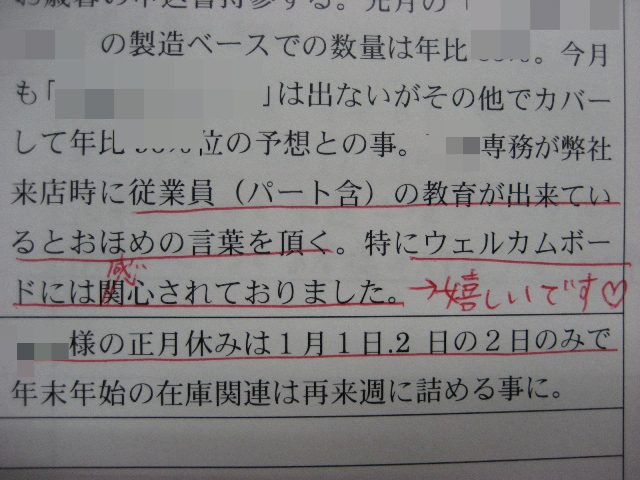 お歳暮の申込書持参する。先月の「
の製造ベースでの数量は年比　。今月
も「　」は出ないがその他でカバー
して年比　位の予想との事。　専務が弊社
来店時に従業員（パート含）の教育が出来てい
るとおほめの言葉を頂く。特にウェルカムボー
感じ
ドには関心されておりました。→嬉しいです♡
様の正月休みは１月１日.２ 日の２日のみで
年末年始の在庫関連は再来週に詰める事に。